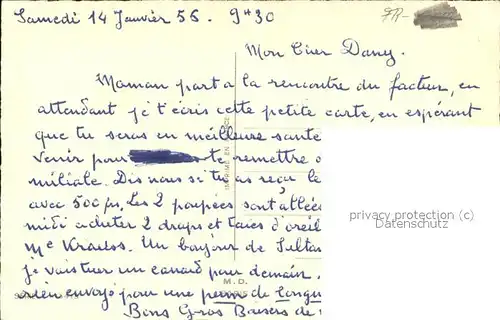 Samedi 14 Janvier 56. 9h30
Mon Cher Dany.
Maman part a la rencontre du facteur, en
attendant je t'écris cette petite carte, en espérant
que tu seras en meilleure sante
venir pour te remettre
miliale. Dis nous si tu as reçu le
avec 500 frs. Les 2 poupées sont allées
midi acheter 2 draps et taies d'oreil
Me Krauss. Un bonjour de Sultan
je vais tuer un canard pour demain.
envoyé pour une de longu
Bons Gros Baisers de
IMPRIMÉ EN FRANCE
M. D.
privacy protection (copyright)
Datenschutz